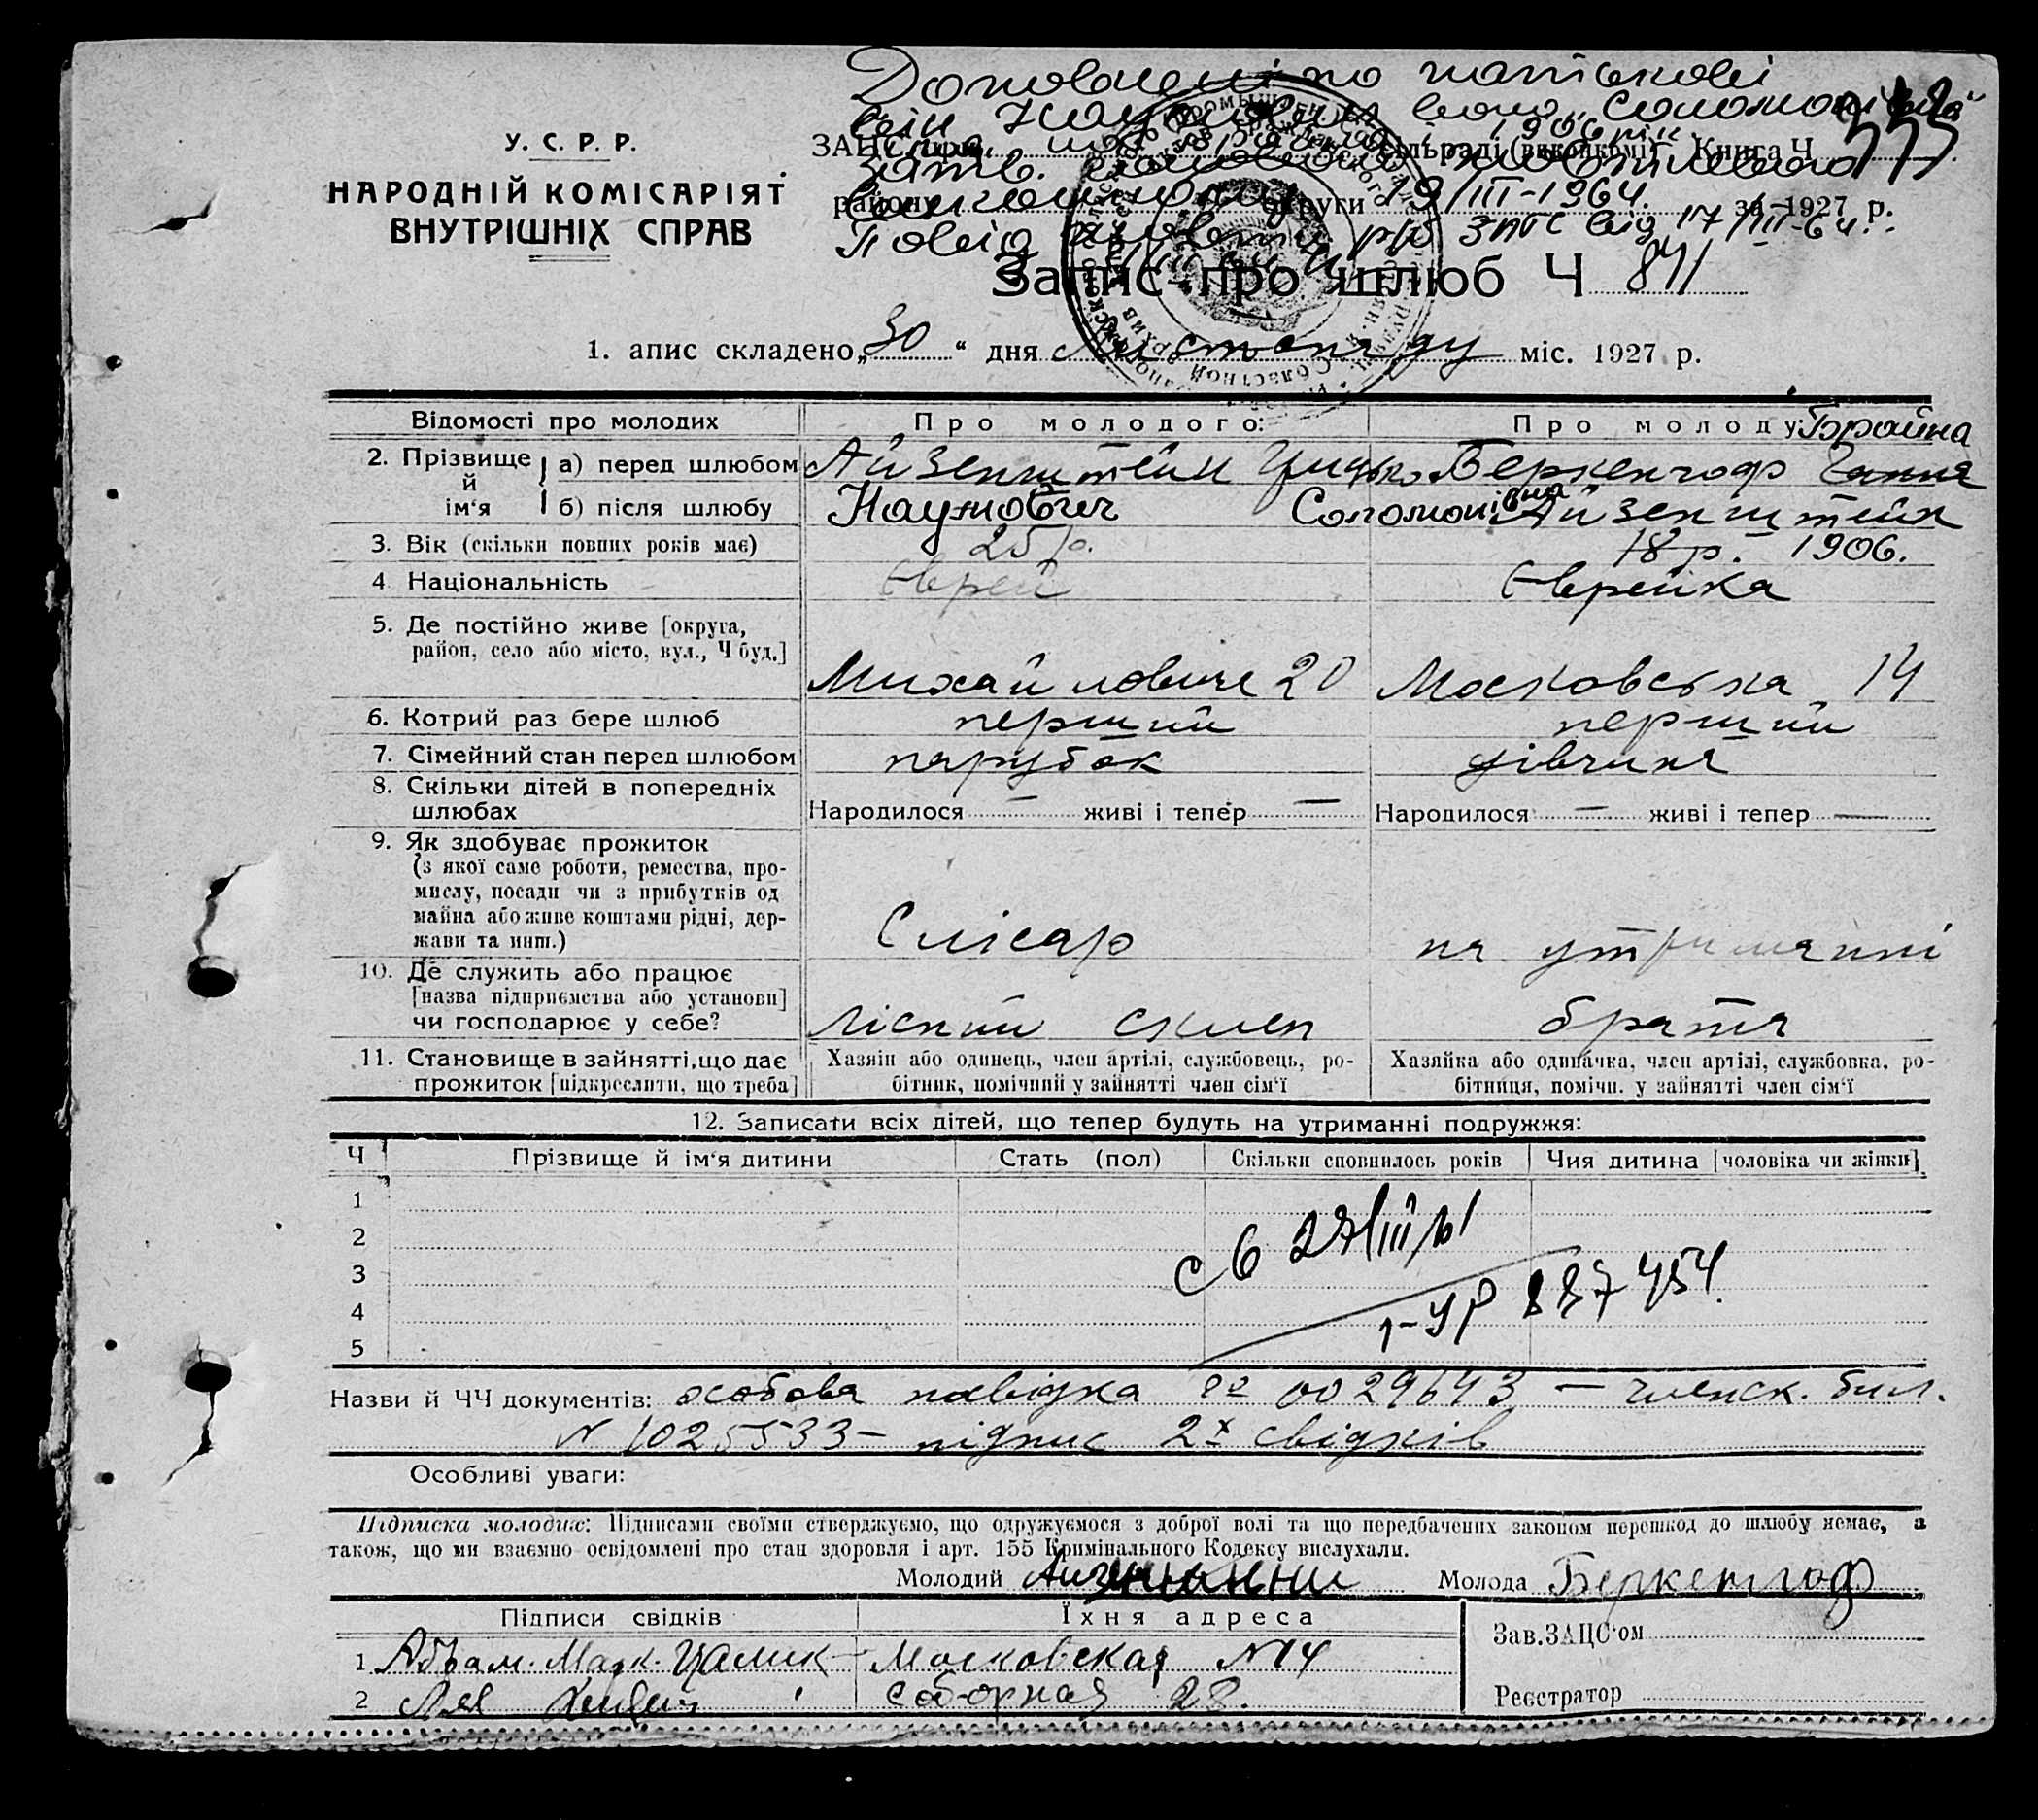 Доповнені по батькові
він Наумович вона Соломонівна
1906 рік
У. С. Р. Р.
НАРОДНІЙ КОМІСАРІЯТ
ВНУТРІШНІХ СПРАВ
ЗАЦС при сільраді (виконкомі) Книга Ч
району округи 19/III-1964. за 1927 р.
ЗАГС від 17/III-64.
Запис про шлюб Ч 871
1. апис складено „30“ дня Листопаду міс. 1927 р.
Відомості про молодих Про молодого: Про молоду: Брайна
2. Прізвище й ім‘я а) перед шлюбом Айзенштейн Беркенгоф Ганна
б) після шлюбу Наумович Соломонівна Айзенштейн
3. Вік (скільки повних років має) 25 р. 18 р. 1906.
4 Національність Єврей Єврейка
5. Де постійно живе [округа,
район, село або місто, вул., Ч буд.] 20 Московська 14
6. Котрий раз бере шлюб перший перший
7. Сімейний стан перед шлюбом парубок дівчина
8. Скільки дітей в попередніх
шлюбах Народилося — живі і тепер — Народилося — живі і тепер —
9. Як здобуває прожиток
(з якої саме роботи, ремества, про-
мислу, посади чи з прибутків од
майна або живе коштами рідні, дер-
жави та инш.) Слісар на утриманні
10. Де служить або працює
[назва підприємства або установи]
чи господарює у себе? Лісний склеп брата
11. Становище в зайнятті, що дає
прожиток [підкреслити, що треба]
Хазяін або одинець, член артілі, службовець, ро-
бітник, помічний у зайнятті член сім‘ї
Хазяйка або одиначка, член артілі, службовка, ро-
бітниця, помічн. у зайнятті член сім‘ї
12. Записати всіх дітей, що тепер будуть на утриманні подружжя:
Ч Прізвище й ім‘я дитини Стать (пол) Скільки сповнилось років Чия дитина [чоловіка чи жінки]
1
2
3
4
5
Назви й ЧЧ документів: особова посвідка 0029643 — членск. бил.
N 1025533 — підпис 2х свідків
Особливі уваги:
Підписка молодих: Підписами своїми стверджуємо, що одружуємося з доброї волі та що передбачених законом перешкод до шлюбу немає, а
також, що ми взаємно освідомлені про стан здоровля і арт. 155 Кримінального Кодексу вислухали.
Молодий Молода Беркенгоф
Підписи свідків Їхня адреса
Зав. ЗАЦС‘ом
1 Абрам. Марк. Цалик Московская N 14
2 Соборная 28.
Реєстратор